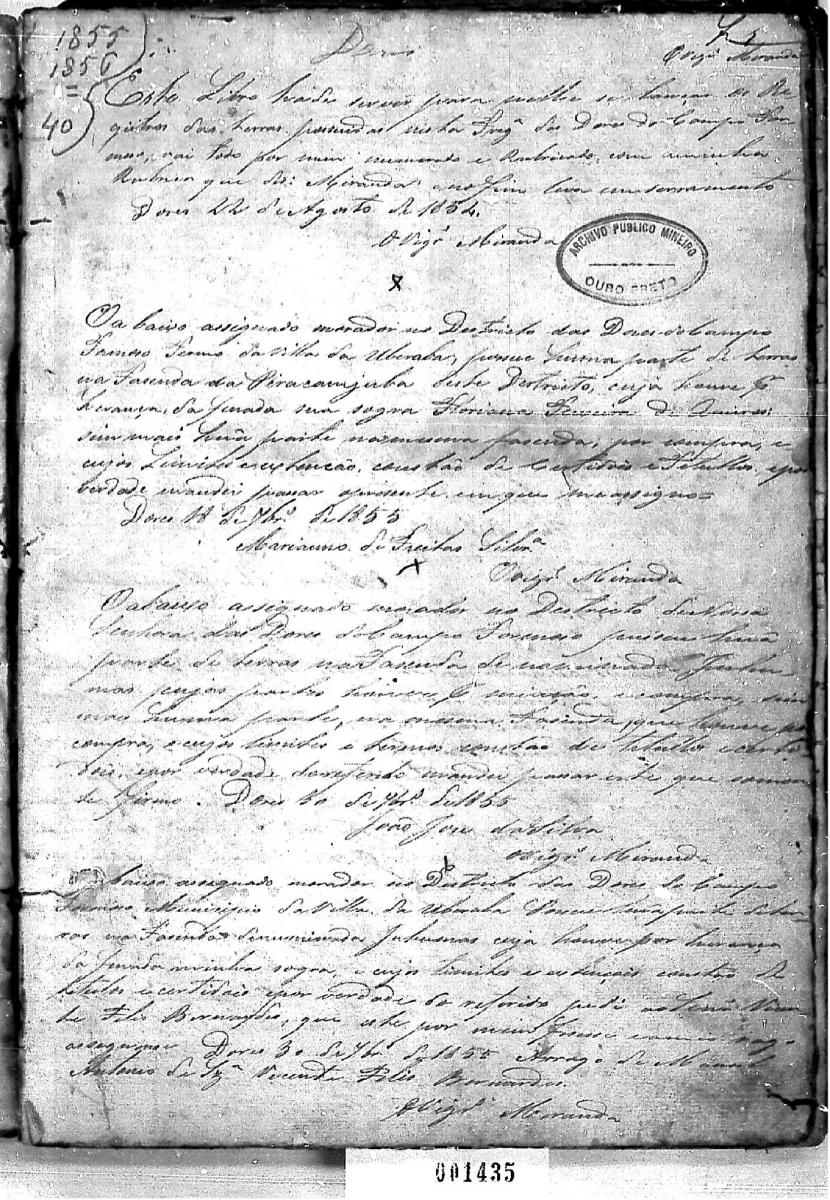 1855
1856
=
40
Dores
O Vigrº Miranda
Este Libro hade servir para nelle se lançar os Re
gistros das terras possuidas nesta Frgª das Dores do Campo For
moso, vai todo por mim numerado e Rubricado com a minha
Rubrica que diz: Miranda: e no fim leva emserramento
Dores 22 de Agosto de 1854.
O Vigrº Miranda
ARCHIVO PUBLICO MINEIRO
OURO PRETO
x
O abaixo assignado morador no Destricto das Dores do Campo
Formoso Termo da Villa da Uberaba, possue huma parte de terras
na Fasenda da Piracanjuba deste Destricto, cuja houve pr
herança, da finada sua sogra Floriana Ferreira de
sim mais huã parte na mesma fasenda, por compra, e
cujos Limites e extenção, constão de Certidois e Titullos, e por
verdade mandei passar o presente em que me assigno=
Dores 18 de 7brº de 1855
Marianno de Freitas Silvª
x
O Vigrº Miranda
O abaixo assignado morador no Destricto de Nossa
Senhora das Dores do Campo Formoso possue huã
parte de terras na Fasenda denominada
mas cujas partes houve pr e compra,
mais huma parte, na mesma Fasenda, que houve por
compra, e cujos limites e termos constão de titullos e certi
dois, e por verdade do referido mandei passar este que somen
te firmo. Dores 30 de 7brº de 1855
João Jose da Silva
O Vigrº Miranda
O abaixo assegnado morador no Destricto das Dores do Campo
Formoso Municipio da Villa da Uberaba Possue huã parte de ter
ras na Fasenda denuminada cuja houve por herança
da finada minha sogra, e cujos limites e extenções constão de
titulos e certidois e por verdade do referido pedi ao Vicen
te Felis Bernardes, que este por mim fisese e a meu rogo
assignase Dores 30 de 7brº de 1855 Arrogo de Manoel
Antonio de Vicente Felis Bernardes.
O Vigrº Miranda
001435